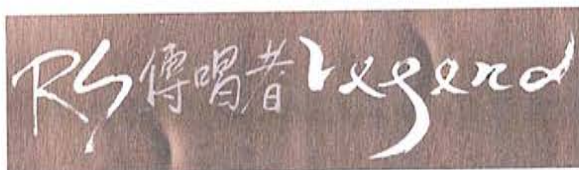 RS 傳唱者 Legend